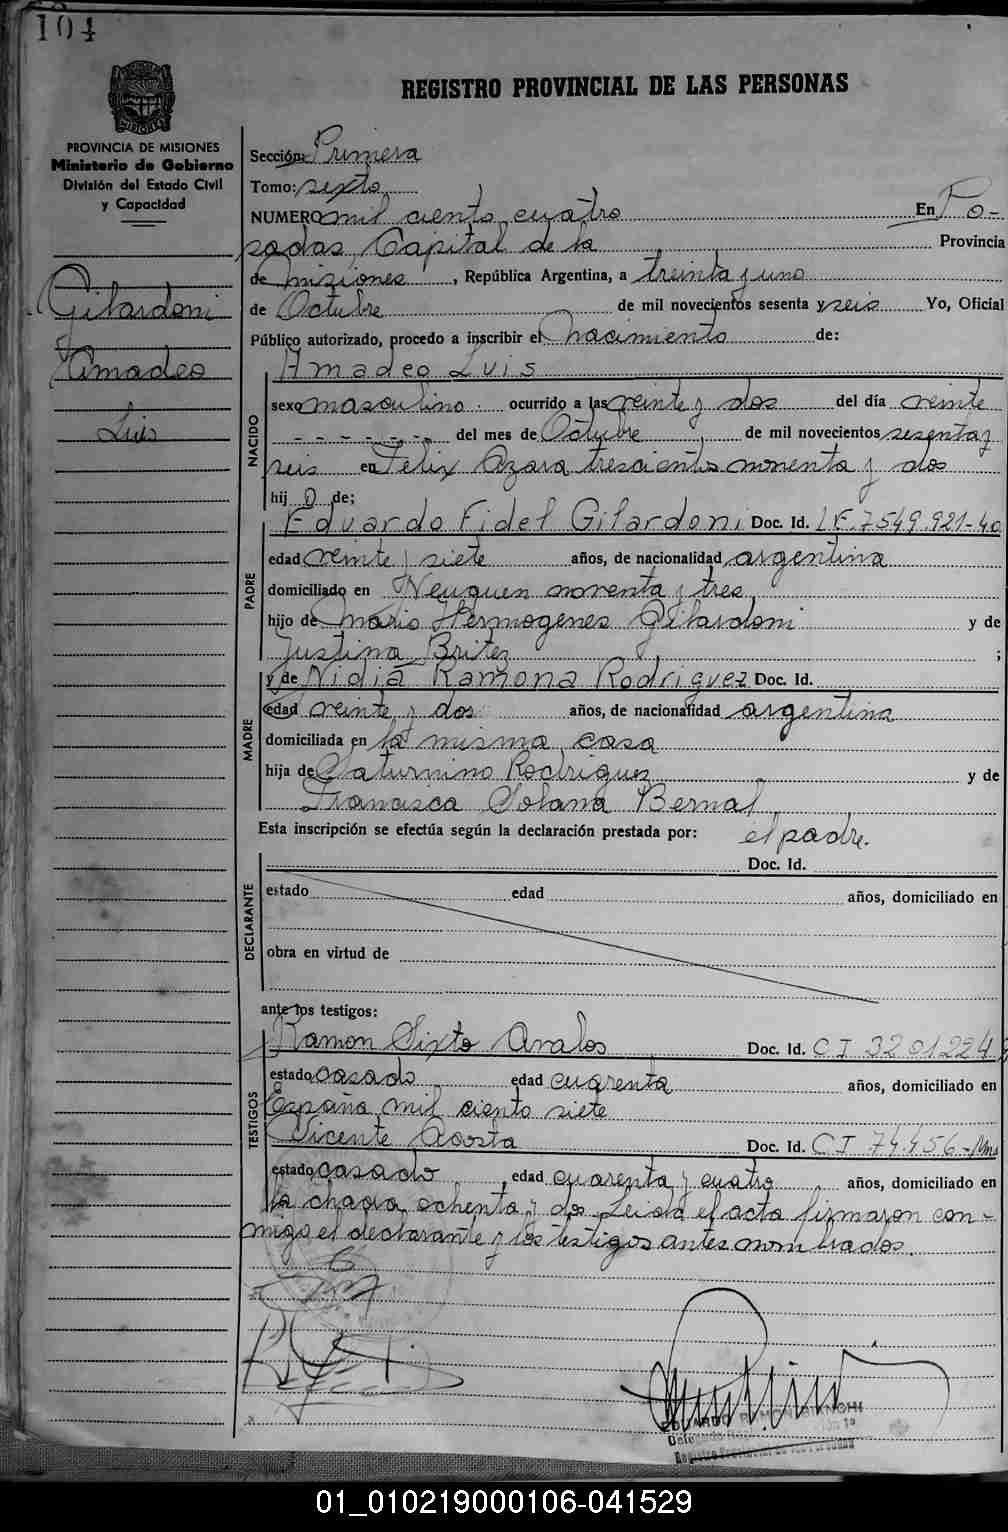 104
REGISTRO PROVINCIAL DE LAS PERSONAS
PROVINCIA DE MISIONES
Ministerio de Gobierno
División del Estado Civil
y Capacidad
Gilardoni
Amadeo
Luis
Sección: Primera
Tomo: sexto
NUMERO mil ciento cuatro En Po-
sadas, Capital de la Provincia
de misiones, República Argentina, a treinta y uno
de Octubre de mil novecientos sesenta y seis Yo, Oficial
Público autorizado, procedo a inscribir el nacimiento de:
Amadeo Luis
NACIDO
sexo masculino. ocurrido a las veinte y dos del día veinte
- - - - - - - del mes de Octubre de mil novecientos sesenta y
seis en Félix Azara trescientos noventa y dos
hij o de;
PADRE
Eduardo Fidel Gilardoni Doc. Id. LE. 7549.921-40
edad veinte y siete años, de nacionalidad argentina
domiciliado en Neuquen noventa y tres
hijo de Mario Hermogenes Gilardoni y de
Justina Britez ;
MADRE
y de Nidia Ramona Rodriguez Doc. Id.
edad veinte y dos años, de nacionalidad argentina
domiciliada en la misma casa
hija de Saturnino Rodriguez y de
Francisca Solana Bernal
Esta inscripción se efectúa según la declaración prestada por: el padre.
DECLARANTE
Doc. Id.
estado edad años, domiciliado en
obra en virtud de
ante los testigos:
TESTIGOS
Ramon Sixto Avalos Doc. Id. C I 3201224
estado casado edad cuarenta años, domiciliado en
España mil ciento siete
Vicente Acosta Doc. Id. C I 74.456-Mns
estado casado edad cuarenta y cuatro años, domiciliado en
la chacra ochenta y dos Leida el acta firmaron con-
migo el declarante y los testigos antes nombrados.
EDUARDO RAMON BIANCHI
Registro Provincial de las Personas
01_010219000106-041529